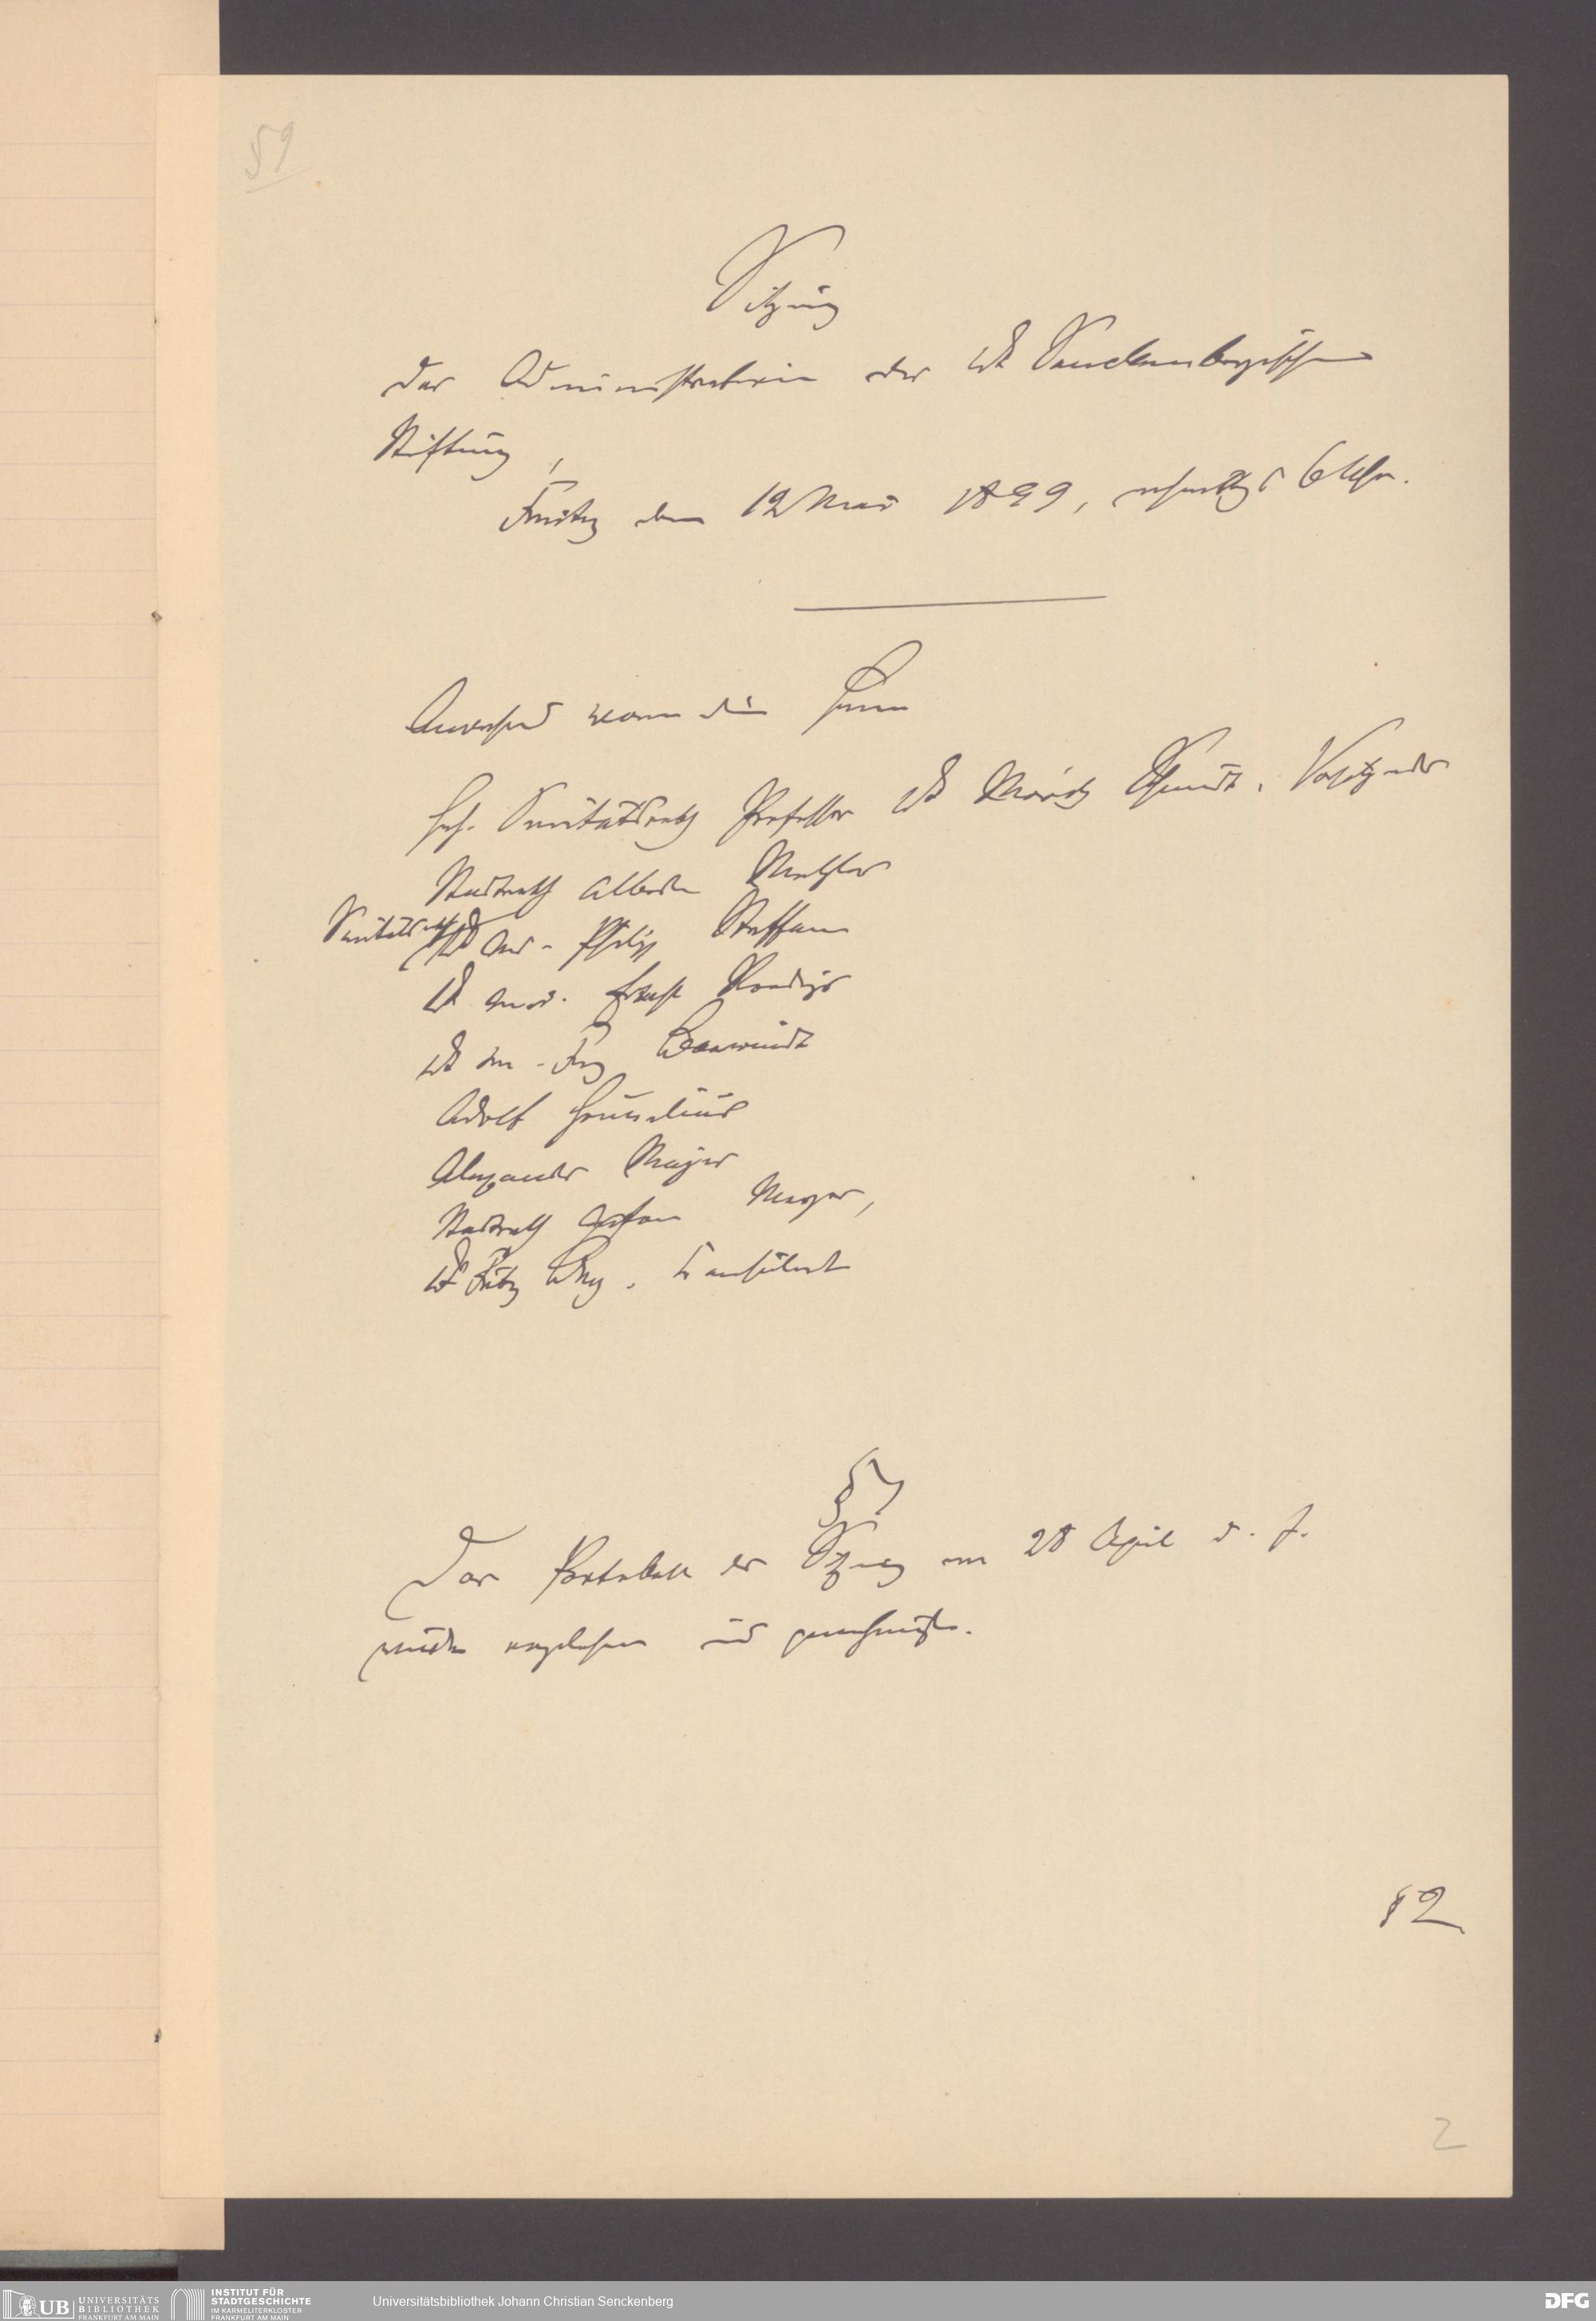 59
Sitzung
der Administration der Dr Senckenbergischen
Stiftung,
Freitag den 12 Mai 1899, nachmittags 6 Uhr.
Anwesend waren die Herren
Geh. Sanitätsrath Professor Dr Moritz Schmidt, Vorsitzender
Stadtrath Albert Metzler
Sanitätsrath Dr med. Philipp Steffan
Dr med. Ernst Roediger
Dr jur. Fritz Berg, Consulent
Adolf Grunelius
Alexander Majer
Stadtrath Meyer,
§ 1
Das Protokoll der Sitzung vom 28 April d. J.
wurde vorgelesen und genehmigt.
§ 2
2
UB UNIVERSITÄTS BIBLIOTHEK FRANKFURT AM MAIN
INSTITUT FÜR STADTGESCHICHTE IM KARMELITERKLOSTER FRANKFURT AM MAIN
Universitätsbibliothek Johann Christian Senckenberg
DFG